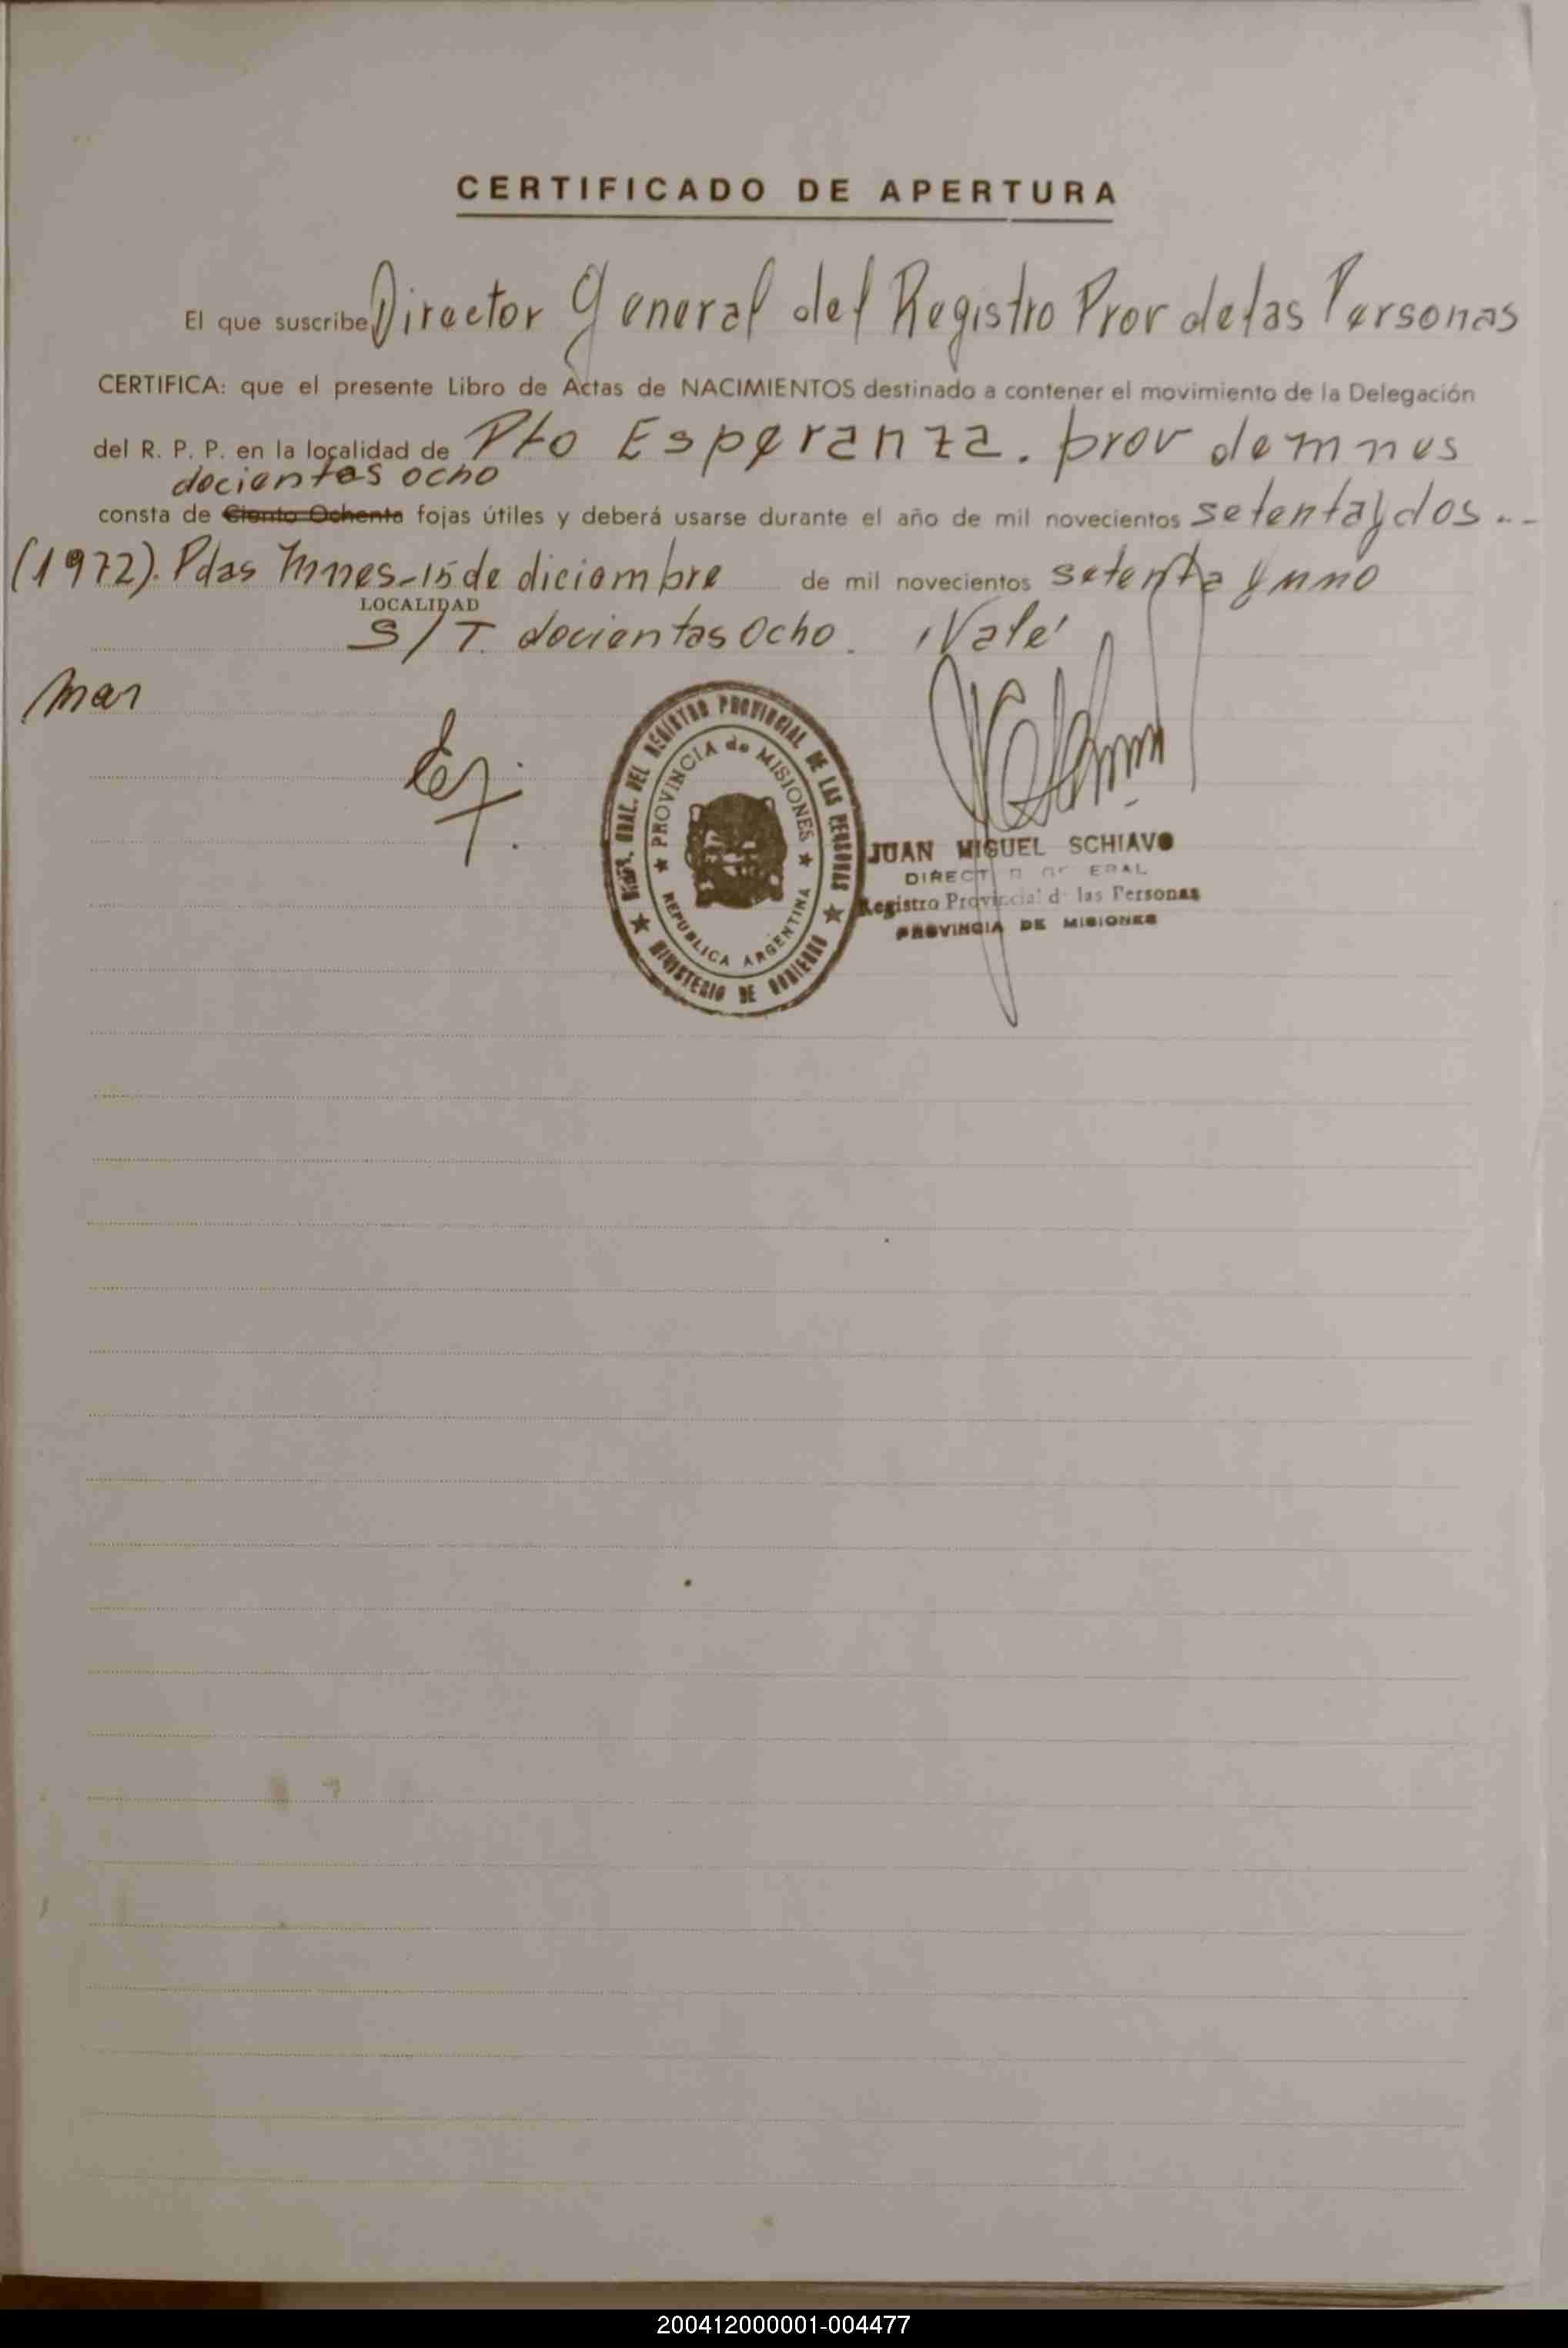 CERTIFICADO DE APERTURA
El que suscribe Director General del Registro Prov de las Personas
CERTIFICA: que el presente Libro de Actas de NACIMIENTOS destinado a contener el movimiento de la Delegación
del R. P. P. en la localidad de Pto Esperanza. prov de mnes
docientos ocho
consta de Ciento Ochenta fojas útiles y deberá usarse durante el año de mil novecientos setenta y dos..-
(1972). Pdas Mnes-15 de diciembre de mil novecientos setenta y uno
LOCALIDAD
S/T. docientos Ocho. "Vale"
mar
REGISTRO PROVINCIAL DE LAS PERSONAS
PROVINCIA de MISIONES
REPUBLICA ARGENTINA
MINISTERIO DE GOBIERNO
JUAN MIGUEL SCHIAVO
Registro Provincial de las Personas
PROVINCIA DE MISIONES
200412000001-004477